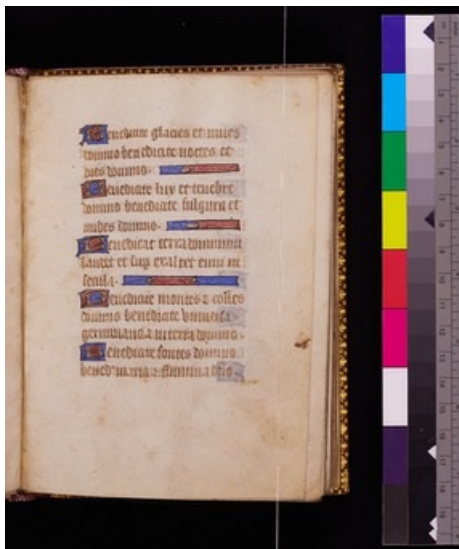 Benedicite glacies et nives
domino benedicite noctes et
dies domino.
Benedicite lux et tenebre
domino benedicite fulgura et
nubes domino.
Benedicat terra dominum
laudet et sup exaltet eum in
secula.
Benedicite montes & colles
domino benedicite universa
germinancia in terra domino.
Benedicite fontes domino
bened maria & flumina dno.